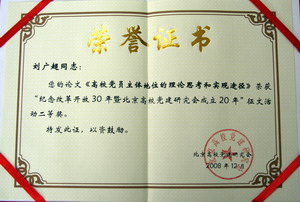 荣誉证书
刘广超同志：
您的论文《高校党员主体地位的理论思考和实现途径》荣获
“纪念改革开放30年暨北京高校党建研究会成立20年”征文活
动二等奖。
特发此证，以资鼓励。
北京高校党建研究会
2008年12月